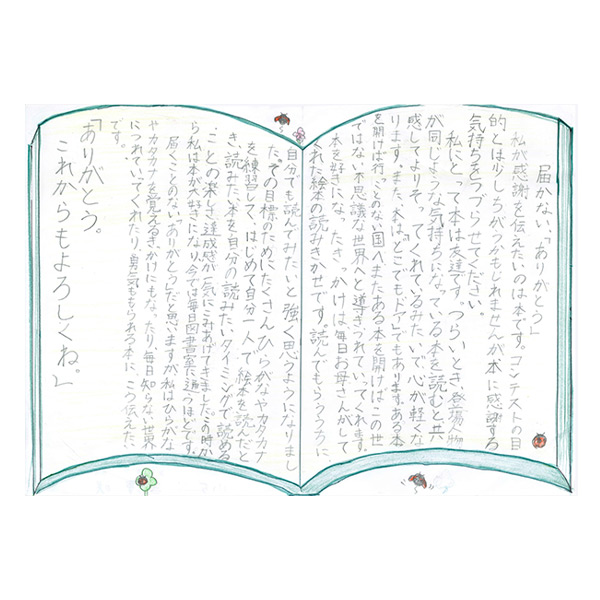 届かない、「ありがとう」
私が感謝を伝えたいのは本です。コンテストの目
的とは少しちがうかもしれませんが本に感謝する
気持ちをつづらせてください。
私にとって本は友達です。つらいとき、登場人物
が同じような気持ちになっている本を読むと共
感してよりそってくれているみたいで心が軽くな
ります。また、本は「どこでもドア」でもあります。ある本
を開けば行ったことのない国へまたある本を開けばこの世
ではない不思議な世界へと導きつれていってくれます。
本を好きになったきっかけは毎日お母さんがして
くれた絵本の読みきかせです。読んでもらううちに
自分でも読んでみたいと強く思うようになりまし
た。その目標のためにたくさんひらがなやカタカナ
を練習して、はじめて自分一人で絵本を読んだと
き、読みたい本を自分の読みたいタイミングで読める
ことの楽しさ、達成感が一気にこみあげてきました。この時か
ら私は本が大好きになり、今では毎日図書室に通うほどです。
届くことのない「ありがとう」だと思いますが私はひらがな
やカタカナを覚えるきっかけにもなったり、毎日知らない世界
につれていってくれたり、勇気ももらえる本に、こう伝えたい
です。
「ありがとう。
これからもよろしくね。」